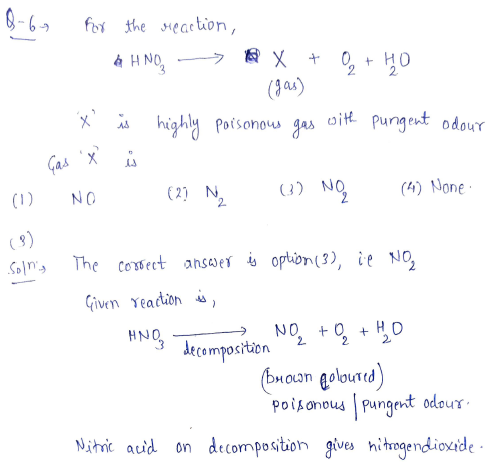 Q-6→ For the reaction,
HNO₃ ⟶ X + O₂ + H₂O
(gas)
'X' is highly poisonous gas with pungent odour
Gas 'X' is
(1) NO (2) N₂ (3) NO₂ (4) None.
(3)
Soln:→ The correct answer is option(3), i.e NO₂
Given reaction is,
HNO₃ ⟶ NO₂ + O₂ + H₂O
decomposition
(Brown coloured)
poisonous / pungent odour.
Nitric acid on decomposition gives nitrogendioxide.